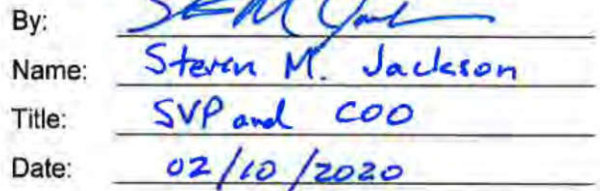 By:
Name: Steven M. Jackson
Title: SVP and COO
Date: 02/10/2020